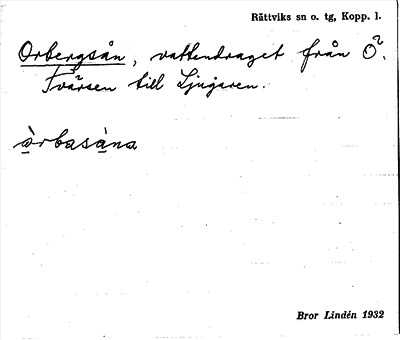 Rättviks sn o. tg, Kopp. l.
Orbergsån, vattendraget från Ö.
Tvärsen till Ljugaren.
òrbasàna
Bror Lindén 1932